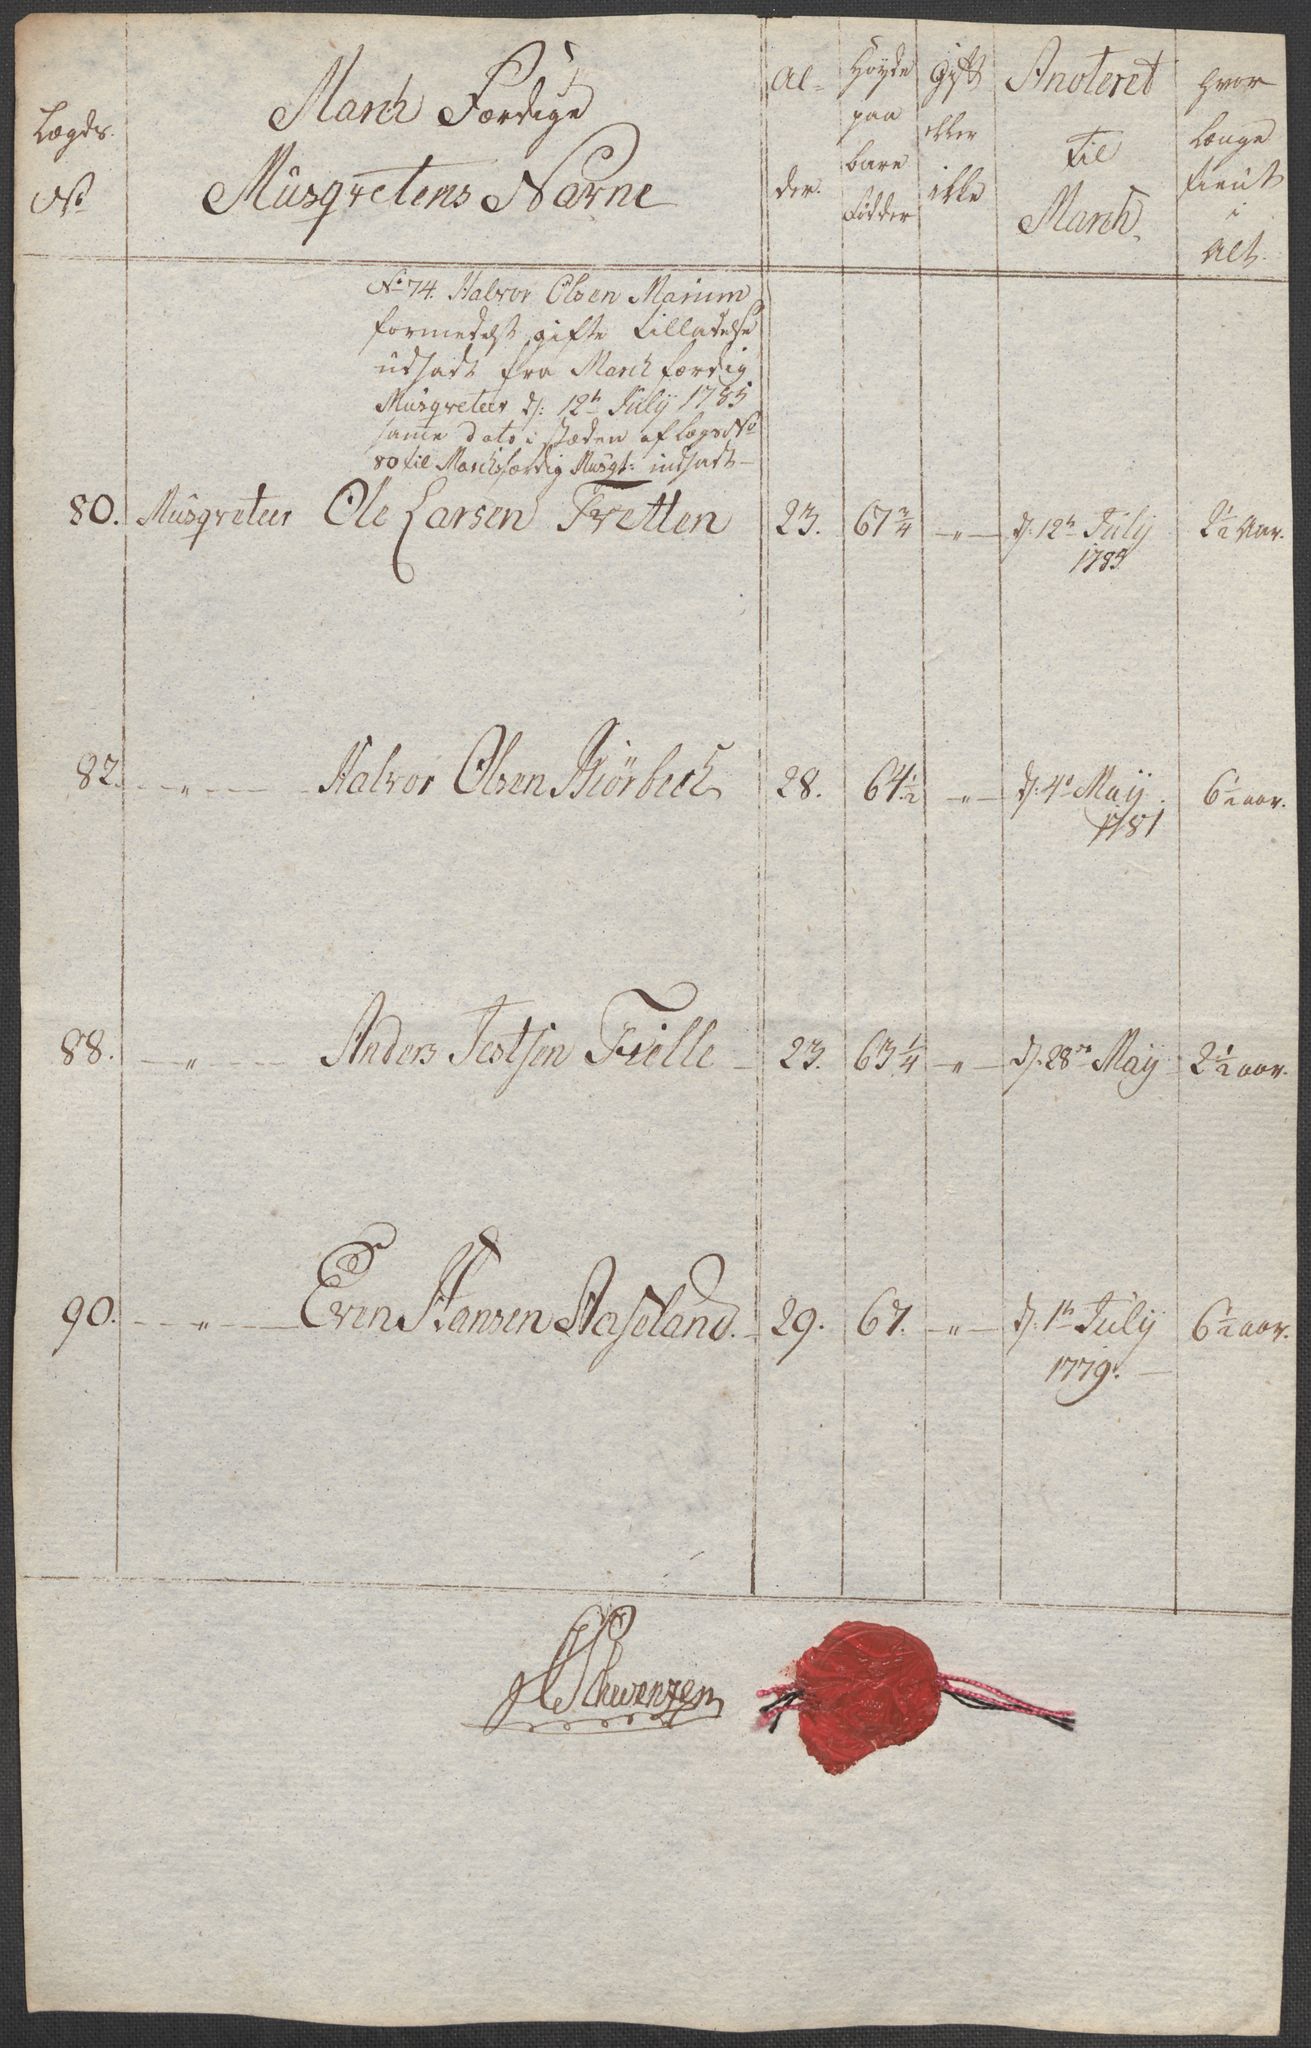 Lægds.
No
March Færdige
Musqvetems Navne
Al-
der.
Høyde
paa
bare
Födder
Gift
eller
ikke
Anoteret
til
March.
hvor
længe
tient
i
Alt.
No 74. Halvor Olsen Marum
formedelst gifte tilladelse
udsadt fra March færdig
Musqveteer d: 12te July 1785
same dato i stæden af Lægs No
80 til Marchfærdig Musqt: indsadt-
80. Musqveteer Ole Larsen Tvetten 23. 67 3/4 -"- d. 12te July 2 1/2 Aar.
1785.
82. -"- Halvor Olsen Kiørbech 28. 64 1/2 -"- d: 4de May 6 1/2 aar.
1781
88. -"- Anders Jestsen Fielle - 23. 63 1/4 -"- d. 28de May 2 1/2 aar.
90. -"- Even Hansen Aaseland. - 29. 67. -"- d. 1te July 6 1/2 aar.
1779. -
Schwenzen